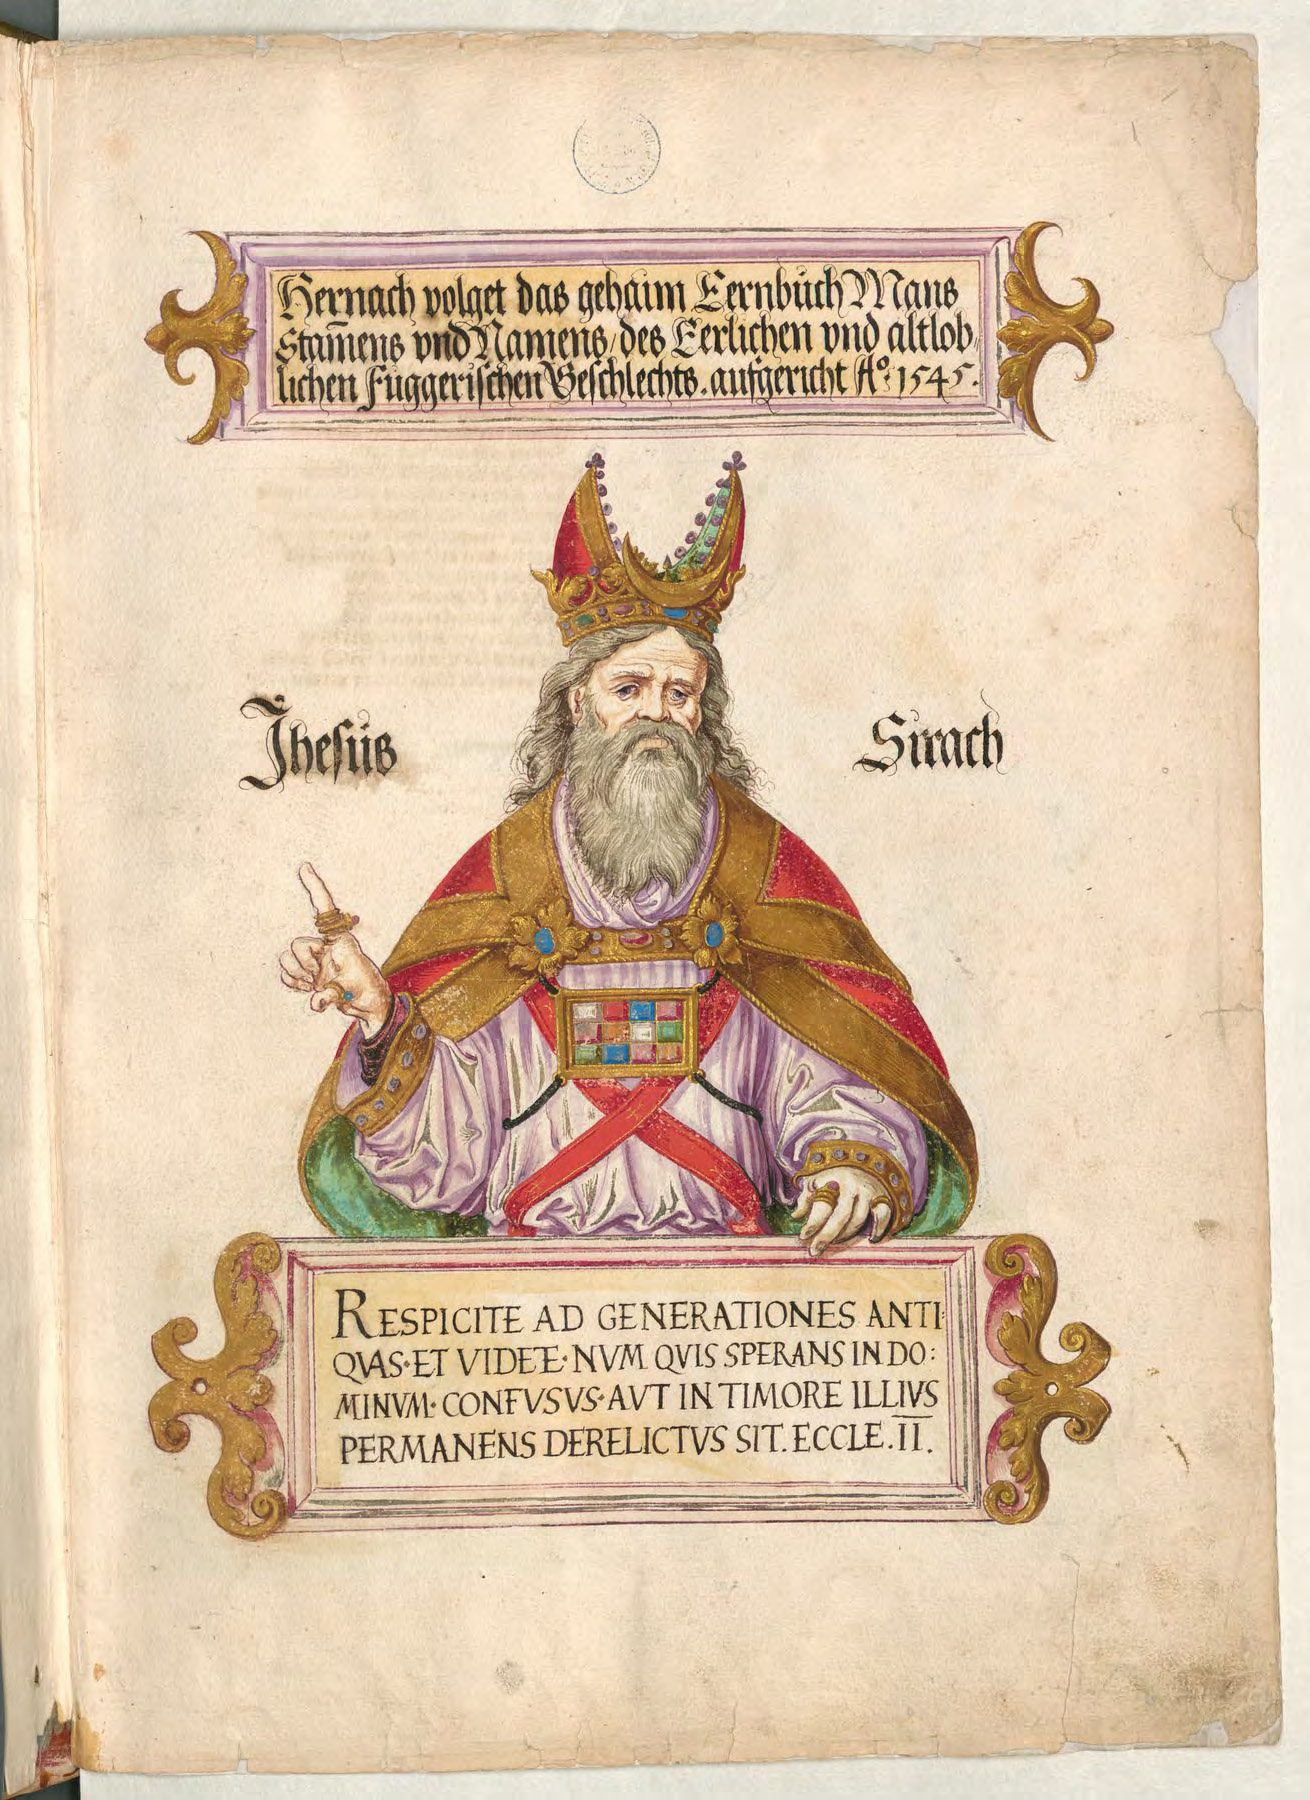 Hernach volget das gehaim Eernbuch Mans
Stam̄ens vnd Namens/ des Eerlichen vnd altlob,
lichen Fuggerischen Geschlechts. aufgericht Aº. 1545.
Jhesus
Sirach
RESPICITE AD GENERATIONES ANTI:
QVAS·ET VIDETE·NVM QVIS SPERANS IN DO:
MINVM·CONFVSVS·AVT IN TIMORE ILLIVS
PERMANENS DERELICTVS SIT. ECCLE. I̅I̅.